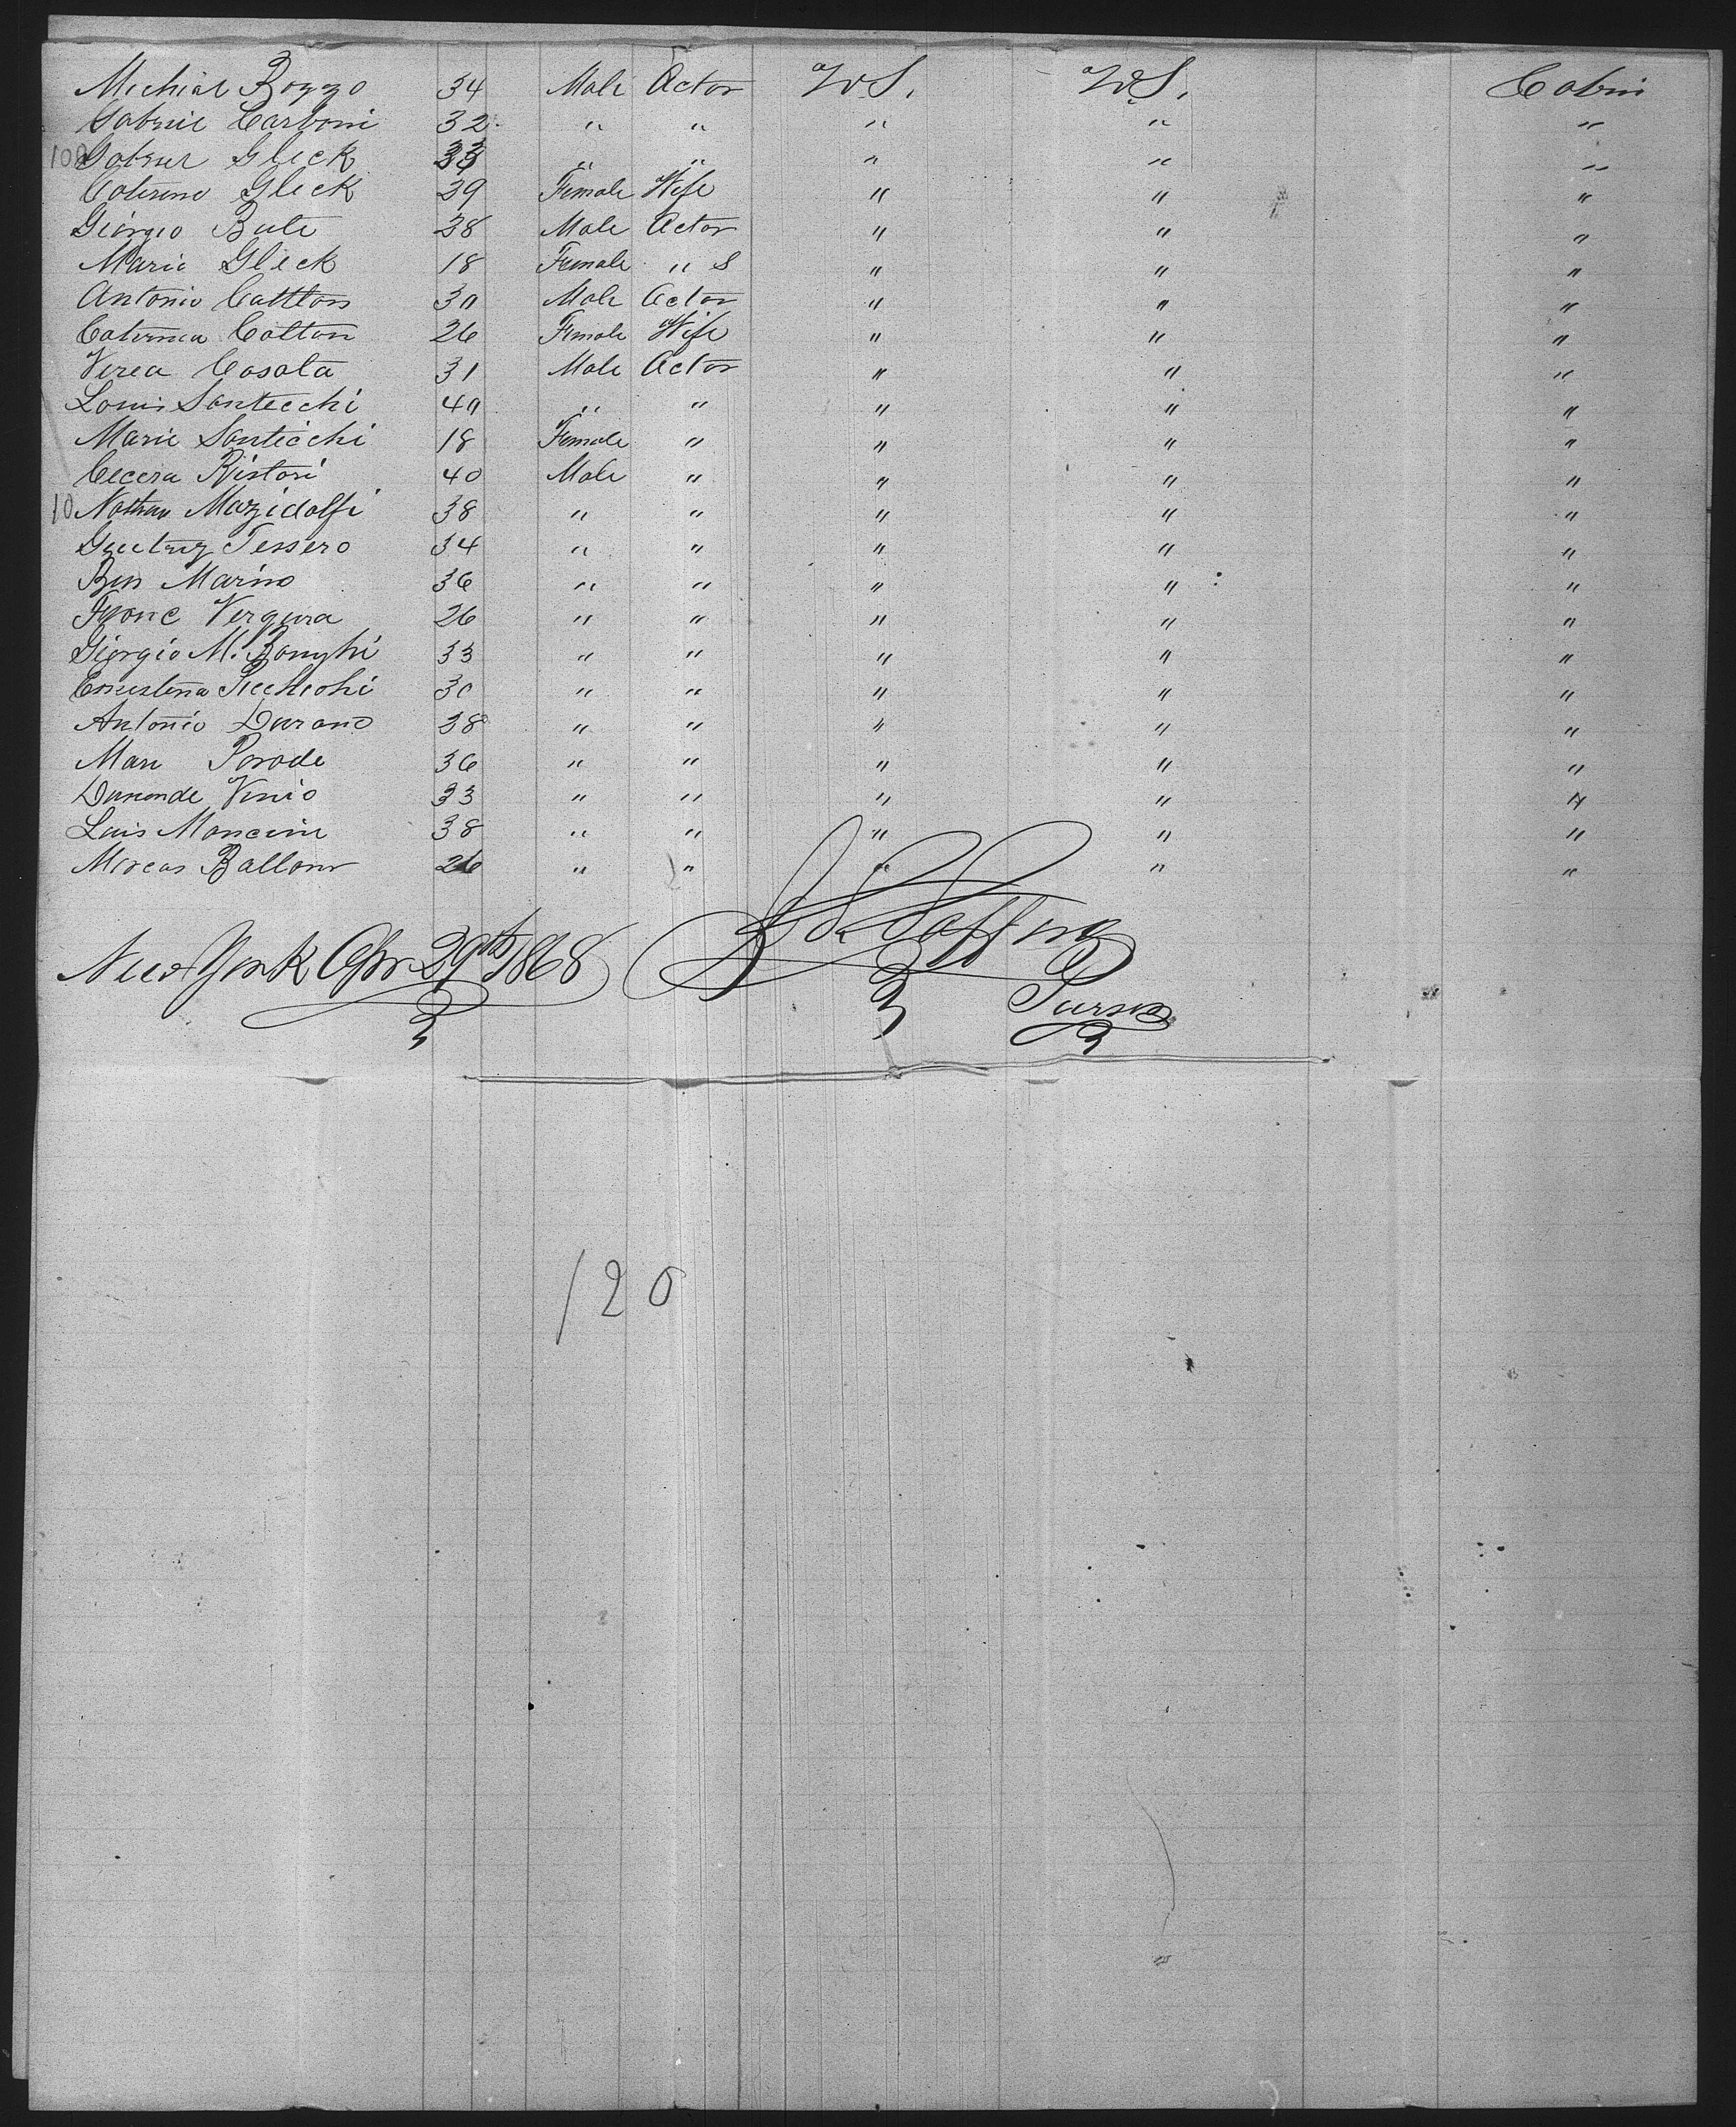 Michial Bozzo 34 Male Actor U.S. U.S. Cabin
Gabriel Carboni 32 " " " " "
100 Gabriel Gleck 33 " " " " "
Caterine Gleck 39 Female Wife " " "
Giorgio Bute 38 Male Actor " " "
Maria Gleck 18 Female " S " " "
Antonio Cattton 30 Male Actor " " "
Caterina Cotton 26 Female Wife " " "
Verea Casata 31 Male Actor " " "
Louis Santecchi 40 " " " " "
Marie Santicchi 18 Female " " " "
Cecera Ristori 40 Male " " " "
10 Nathan Mazidolfi 38 " " " " "
Tessero 34 " " " " "
Ben Marino 36 " " " " "
Franc Vergura 26 " " " " "
Giorgio M. Bonghi 33 " " " " "
Ernestina 30 " " " " "
Antonio Durano 38 " " " " "
Mari Parode 36 " " " " "
Vinio 33 " " " " "
Luis Moncini 38 " " " " "
Marcas 26 " " " " "
New York Apr 29th 1868
Purser
120